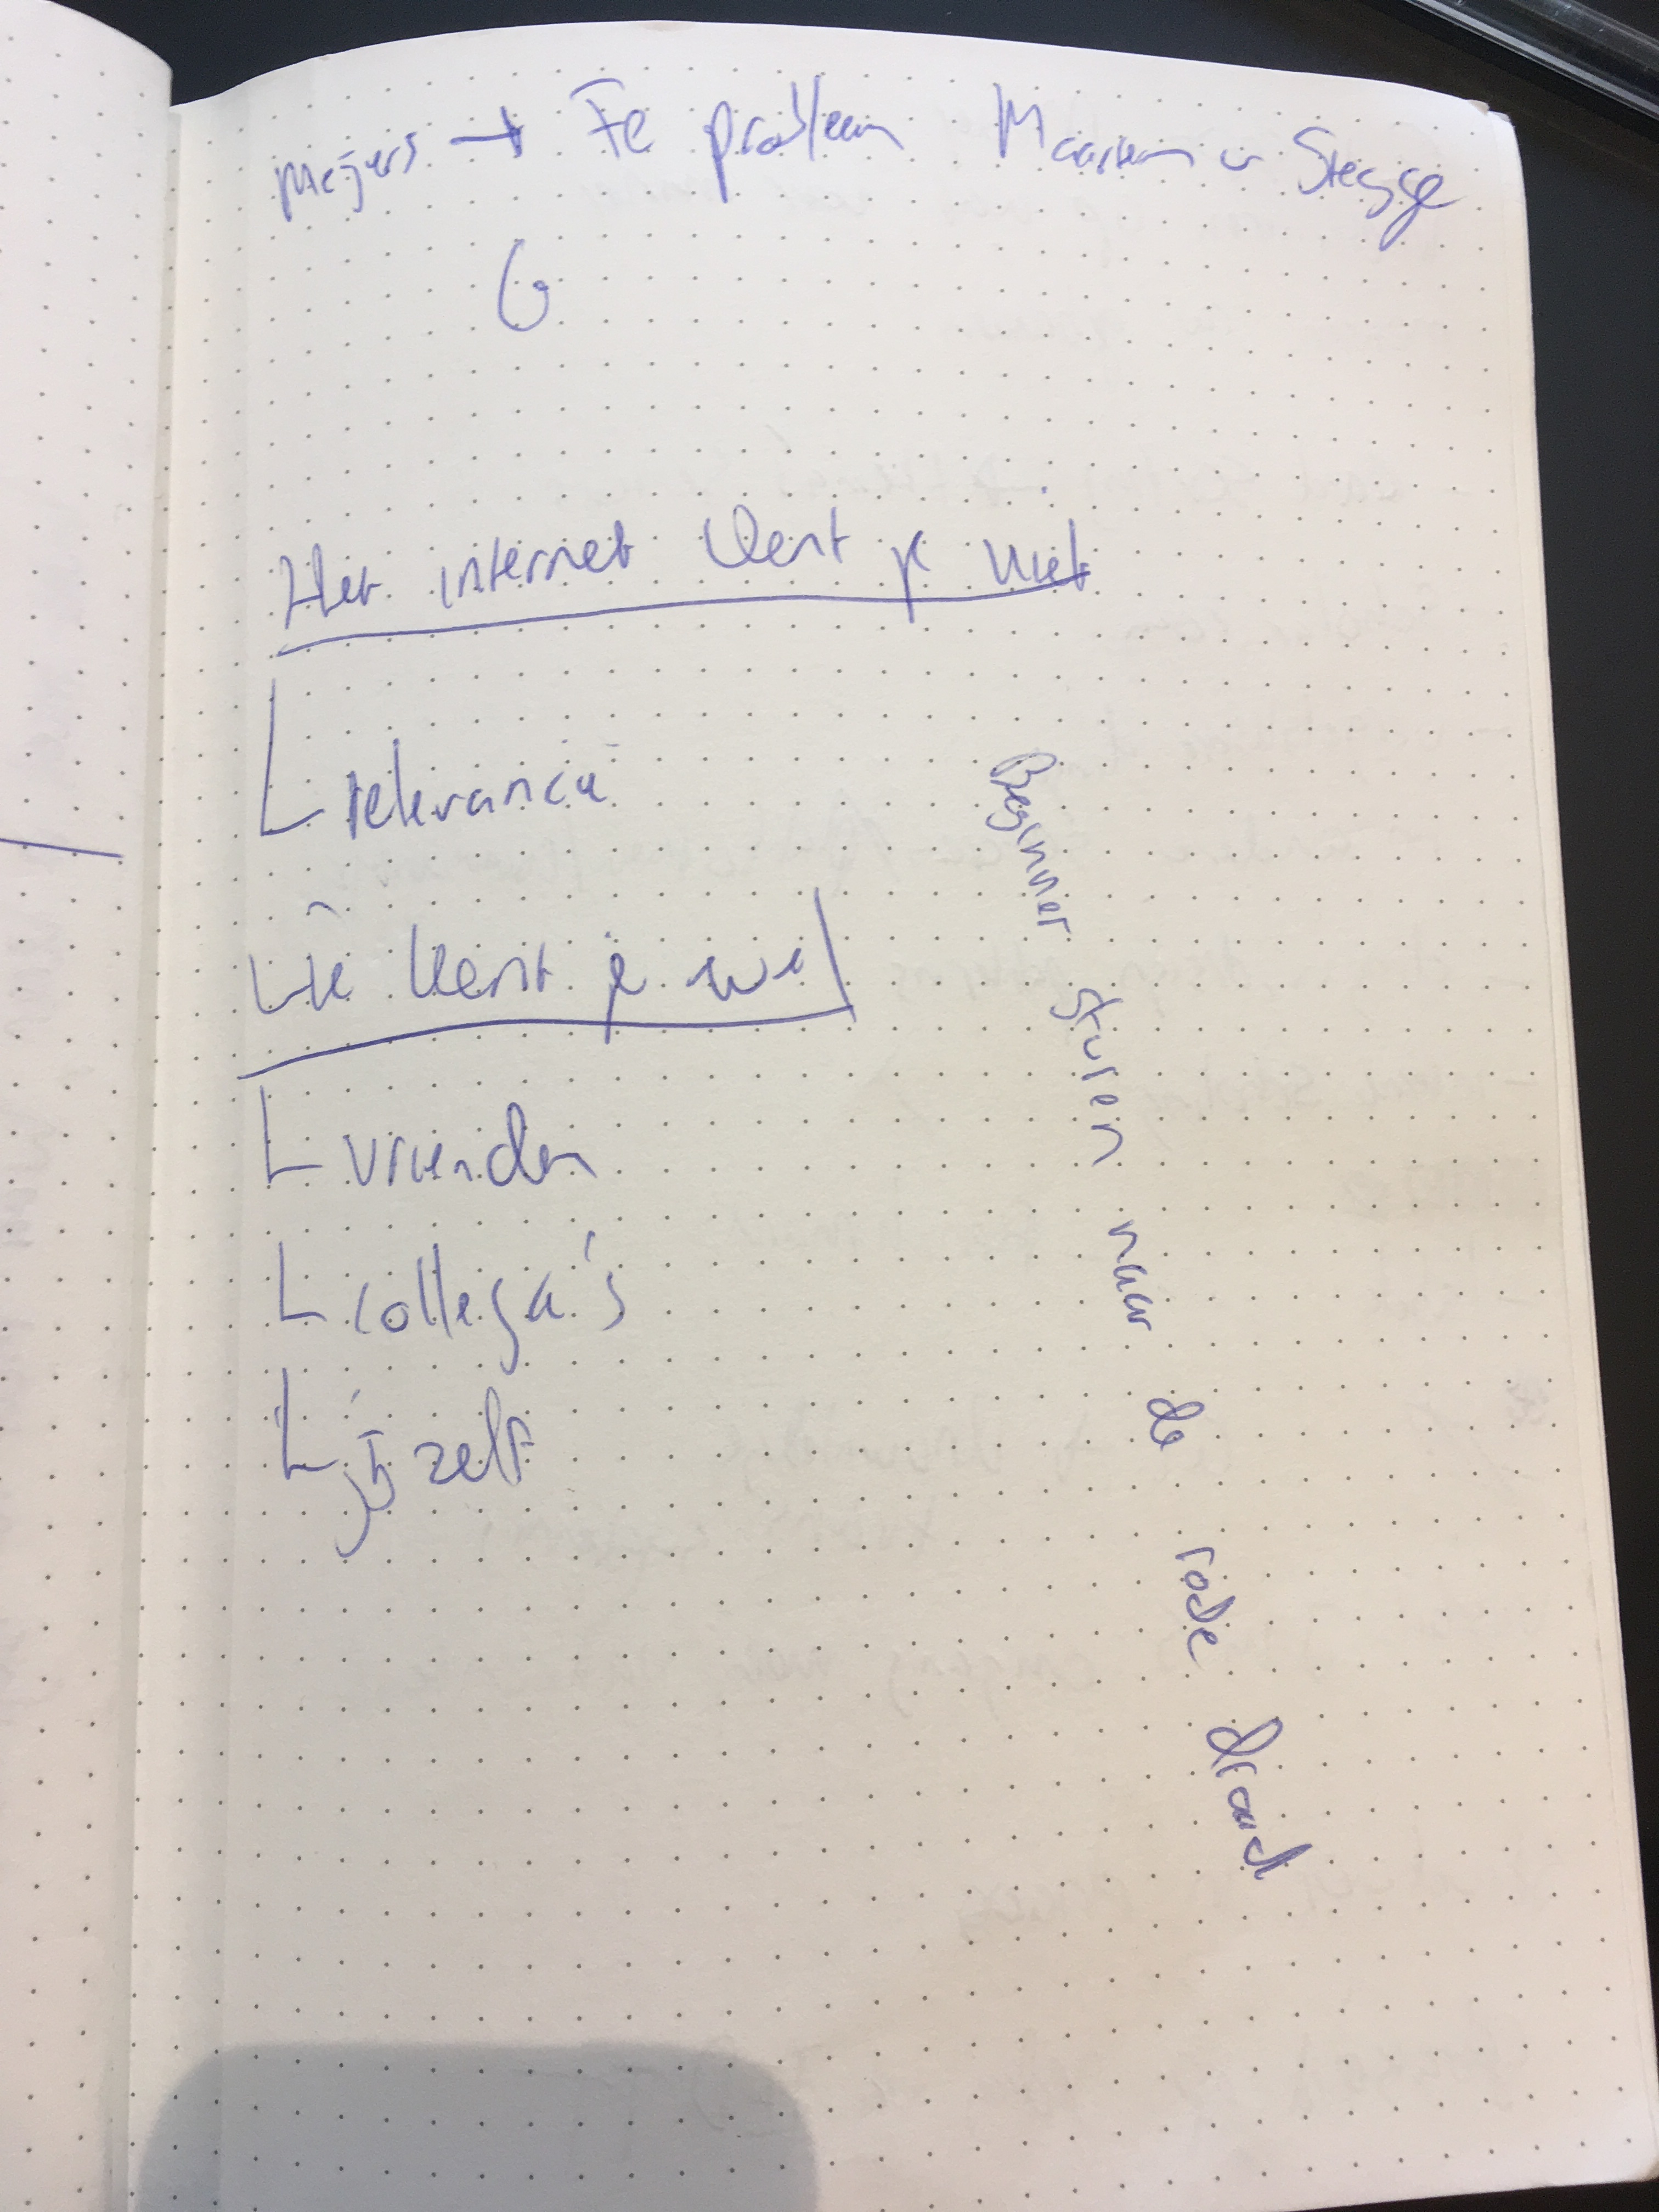 Meijers → Fe probleem Maarten v Stegge
Het internet kent je niet
relevancie
Wie kent je wel
vrienden
collega's
jij zelf
Beginner sturen naar de rode draad